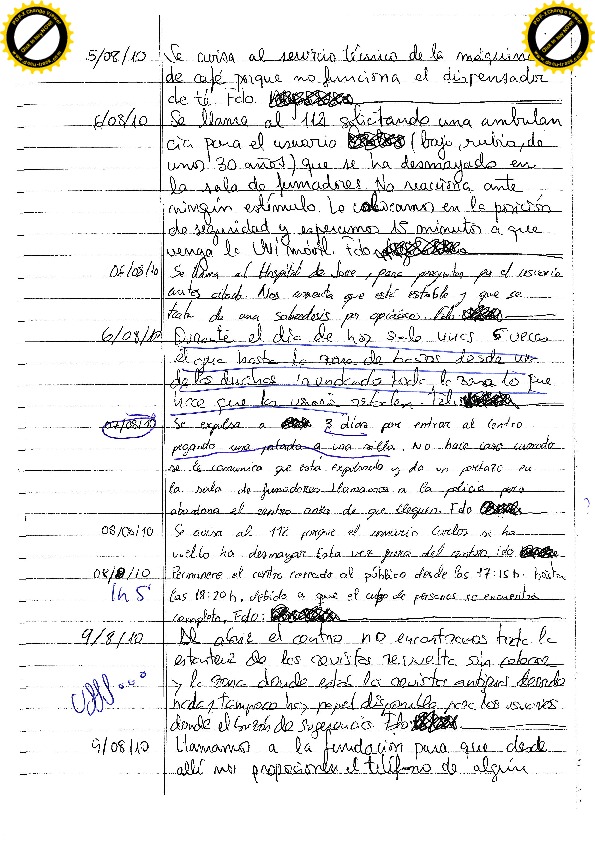 5/08/10 Se avisa al servicio técnico de la máquina
de café porque no funciona el dispensador
de té. Fdo.
6/08/10 Se llama al 112 solicitando una ambulan
cia para el usuario (bajo, rubio, de
unos 30 años) que se ha desmayado en
la sala de fumadores. No reacciona ante
ningún estímulo. Le colocamos en la posición
de seguridad y esperamos 15 minutos a que
venga la UVI móvil. Fdo
06/08/10 Se llama al Hospital de , para preguntar por el usuario
antes citado. Nos comenta que está estable y que se
trata de una sobredosis por opiáceos. Fdo
6/08/10 Durante el día de hoy sale unas 5 veces
el agua hasta la zona de baños desde una
de las duchas inundando toda la zona lo que
hace que los usuarios
07/08/10 Se expulsa a 3 días por entrar al centro
pegando una patada a una silla. No hace caso cuando
se le comunica que está expulsado y da un portazo en
la sala de fumadores. Llamamos a la policía pero
abandona el centro antes de que lleguen. Fdo
08/08/10 Se avisa al 112 porque el usuario Carlos se ha
vuelto ha desmayar esta vez fuera del centro. Fdo
08/8/10 Permanece el centro cerrado al público desde las 17:15h. hasta
1h 5' las 18:20h. debido a que el cupo de personas se encuentra
completo. Fdo:
9/8/10 Al abrir el centro no encontramos toda la
estantería de las revistas revuelta sin colocar
y la zona donde están las revistas antiguas
tampoco hay papel disponible para los usuarios
donde el buzón de sugerencias. Fdo
9/08/10 Llamamos a la fundación para que desde
allí nos proporcionen el teléfono de algún